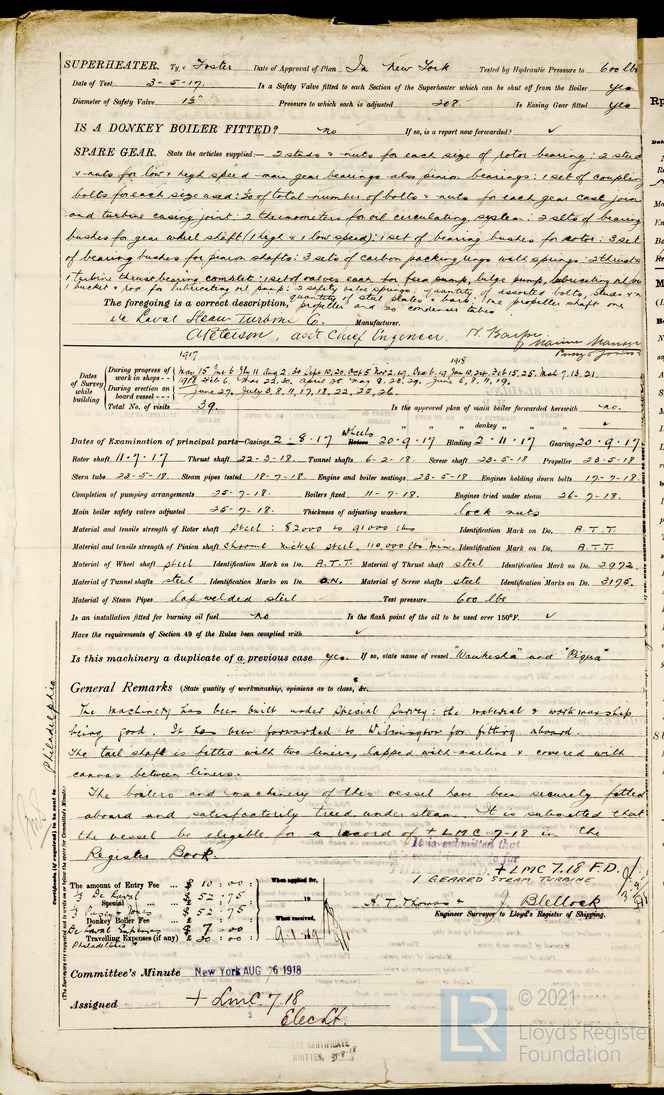 SUPERHEATER. Type Foster Date of Approval of Plan In New York Tested by Hydraulic Pressure to 600 lbs
Date of Test 3-5-17. Is a Safety Valve fitted to each Section of the Superheater which can be shut off from the Boiler yes
Diameter of Safety Valve Pressure to which each is adjusted 208. Is Easing Gear fitted yes
IS A DONKEY BOILER FITTED? no If so, is a report now forwarded? ✓
SPARE GEAR. State the articles supplied:— 2 studs & nuts for each size of rotor bearing: 2 stud
& nuts for low & high speed main gear bearings also pinion bearings: 1 set of coupling
bolts for each size used: of total number of bolts & nuts for each gear case join
and turbine casing joint: 2 thermometers for oil circulating system: 2 sets of bearing
bushes for gear wheel shaft (1 high & 1 low speed): 1 set of bearing bushes for rotor: 3 set
of bearing bushes for pinion shafts: 3 sets of carbon packing rings with springs: 2 thrust
1 turbine thrust bearing complet: 1 set of valves each for feed pump, bilge pump, lubricating oil
1 bucket & rod for lubricating oil pump: 2 safety valve springs: quantity of assorted bolts, studs &
quantity of steel plates & bars: One propeller shaft one
The foregoing is a correct description, propeller and 20 condenser tubes
De Laval Steam Turbine Co. Manufacturer.
Asst Chief Engineer.
1917 1918
Dates of Survey while building
During progress of work in shops - -
During erection on board vessel - - -
June 27, July 3, 8, 11, 17, 18, 22, 25, 26.
Total No. of visits 39. Is the approved plan of main boiler forwarded herewith no.
" " " donkey " " " ✓
Dates of Examination of principal parts—Casings 2-8-17 Wheels 20-9-17 Blading 2-11-17 Gearing 20-9-17
Rotor shaft 11-7-17 Thrust shaft 22-3-18. Tunnel shafts 6-2-18. Screw shaft 23-5-18 Propeller 23-5-18
Stern tube 23-5-18. Steam pipes tested 18-7-18. Engine and boiler seatings 23-5-18 Engines holding down bolts 17-7-18
Completion of pumping arrangements 25-7-18. Boilers fixed 11-7-18. Engines tried under steam 26-7-18.
Main boiler safety valves adjusted 25-7-18. Thickness of adjusting washers lock nuts
Material and tensile strength of Rotor shaft Steel: 82000 to 91000 lbs Identification Mark on Do. A.T.T.
Material and tensile strength of Pinion shaft Chrome nickel steel, 110,000 lbs min. Identification Mark on Do. A.T.T.
Material of Wheel shaft steel Identification Mark on Do. A.T.T. Material of Thrust shaft steel Identification Mark on Do. 2972
Material of Tunnel shafts steel Identification Marks on Do. Material of Screw shafts steel Identification Marks on Do. 3175
Material of Steam Pipes lap welded steel Test pressure 600 lbs
Is an installation fitted for burning oil fuel no Is the flash point of the oil to be used over 150°F. ✓
Have the requirements of Section 49 of the Rules been complied with ✓
Is this machinery a duplicate of a previous case yes If so, state name of vessel "Waukesha" and "Piqua"
General Remarks (State quality of workmanship, opinions as to class, &c.
The machinery has been built under special survey: the material & workmanship
being good. It has been forwarded to Wilmington for fitting aboard.
The tail shaft is fitted with two liners, lapped with marline & covered with
canvas between liners.
The boilers and machinery of this vessel have been securely fitted
aboard and satisfactorily tried under steam. It is submitted that
the vessel be eligible for a record of + LMC 7-18 in the
Register Book.
It is submitted that
+ LMC 7.18 F.D.
1 GEARED STEAM TURBINE
The amount of Entry Fee $ 10:00 When applied for,
De Laval Special $ 52.75 19
$ 52:75
Donkey Boiler Fee
De Laval Expenses $ 7.00 When received,
Travelling Expenses (if any) 20:00
Philadelphia
H. T. Thomas & J. Blellock
Engineer Surveyor to Lloyd's Register of Shipping.
Committee's Minute New York AUG 1918
Assigned + LMC. 7 18
Elec Lt.
CERTIFICATE
WRITTEN,
Philadelphia
Certificate (if required) to be sent to
(The Surveyors are requested not to write on or below the space for Committee's Minute.)
LR © 2021
Lloyd's Register
Foundation